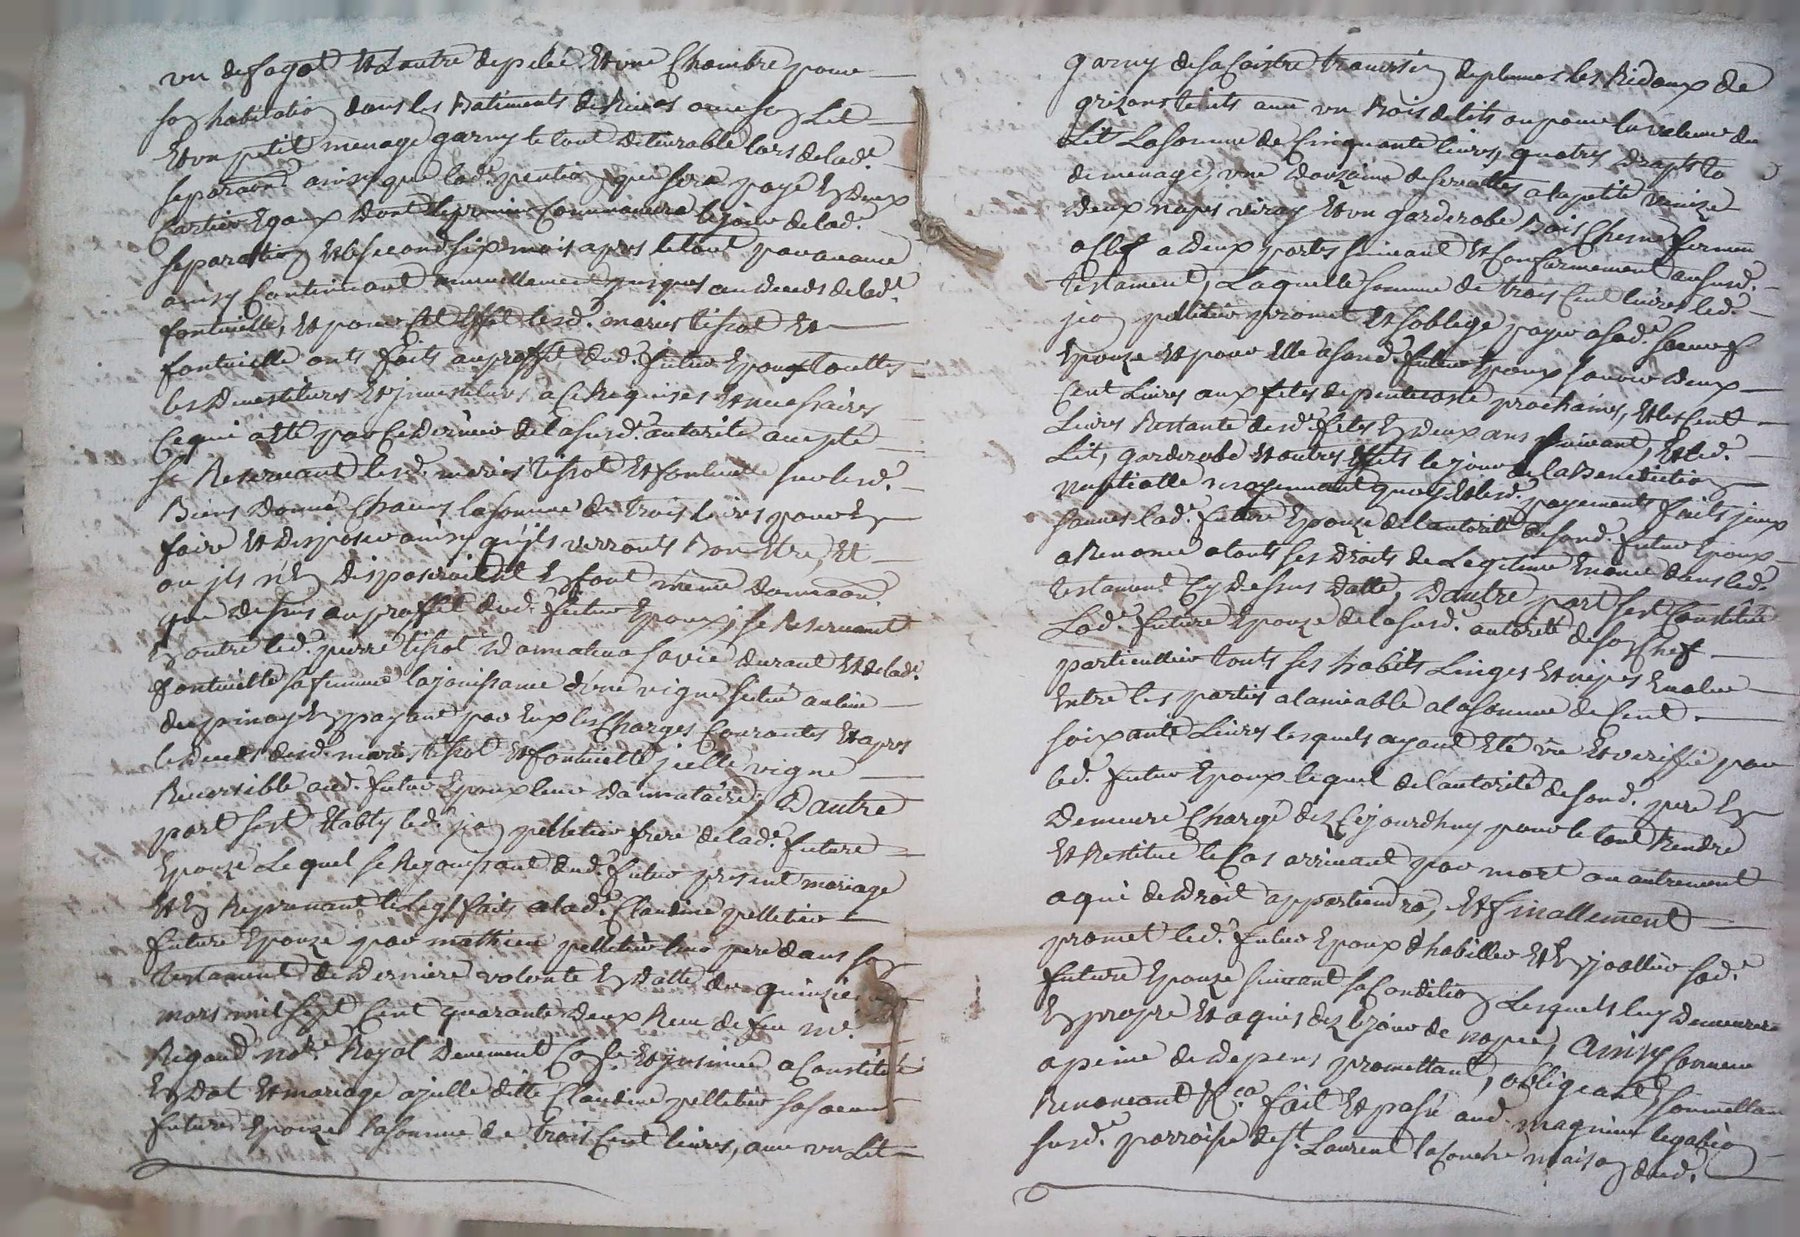 un de fagot Et Lautre de pelée Et une Chambre pour
son habitation dans les Batiments de avec son Lit
Et un petit menage garny le tout detterable lors de lade
separaon ainsy que lade pention, qui sera payé En deux
Cartiers Egaux dont le premier Commancera le jour de lade
separation Et le second six mois apres le tout par avance
ainsy Continuant annuellement jusques au deceds de lade
fontinielle, Et pour Cet Effet lesd. maries tissot Et
fontinielle onts faits au proffit dud. futur Epoux touttes
les Devestitures Et jnvestitures a Ce Requises Et necessaires
Ce qui a Eté par Ce dernier de la susde autorité accepté
se Reservant lesd. maries tissot Et fontinielle sur lesd.
Biens donné Chacun la somme de trois livres pour En
faire Et disposer ainsy qu'jls verronts Bon Etre, Et
ou jls n'En disposeroient En font meme donnaon
que dessus au proffit dud. futur Epoux, se Reservant
En outre led. pierre tissot sa vie durant Et de lade
fontinielle sa femme la jouissance d'une vigne située au lieu
du En payant par Eux les Charges Courantes Et apres
le deceds desd. maries tissot Et fontinielle jcelle vigne
Reversible aud. futur Epoux leur donnataire, D'autre
part s'est Etably led. jean pelletier frere de lade future
Epouze Lequel se Rejouissant dud. futur present mariage
Et En Reprenant le legs faits a lade Claudine pelletier
future Epouze par mathieu pelletier leur pere dans son
testament de derniere volonté En datte du quinzie
mars mil sept Cent quarante deux Receu de feu me
Rigaud nore Royal Deuement Et jnsinué a Constitué
En dot Et mariage a jcelle ditte Claudine pelletier sa soeur
future Epouze la somme de trois Cent livres, avec un Lit
garny de sa Coistre traversin de plumes les Ridaux de
grizons teints avec un Bois de lits ou pour la valeur du
Lit La somme de Cinquante livres, quatres Draps
de menage, une Douzaine de serviettes a la petite venize
Deux napes Et un garderobe Bois Chesne fermen
a Clef a Deux portes suivant Et Conformement au susd.
testament, Laquelle somme de trois Cent livres led.
jean pelletier promet Et s'oblige payer a sade soeur f
Epouze Et pour Elle a sond. futur Epoux sçavoir Deux
Cent Livres aux fetes de pentecoste prochaines, Et les Cent
Livres Restante desd. fetes En Deux ans suivant, Et led.
Lit, garderobe Et autres Effets le jour de la Benediction
nuptialle moyennant quoy Et lesd. payements faits jceux
lade future Epouze de l'autorité de sond. futur Epoux
a Renoncé a touts ses Droits de Legitime Enoncé dans led.
testament Cy Dessus datté, D'autre part s'est Constitué
Lade future Epouze de la susde autorité de son Chef
particullier touts ses habits Linges Et nipes Evalué
Entre les parties a l'amiable a la somme de Cent
soixante Livres lesquels ayant Eté vû Et veriffié par
led. futur Epoux lequel de l'autorité de sond. pere En
Demeure Chargé dez Cejourdhuy pour le tout Rendre
Et Restitué le Cas arrivant par mort ou autrement
a qui de Droit appartiendra, Et finallement
promet led. futur Epoux d'habiller Et Enjoaller sade
future Epouze suivant sa Condition Lesquels luy Demeurero
En propre Et aquis dez le jour de nopce, Ainsy Convenu
a peine de depens promettant, obligeant soumettan
Renoncant &Ca fait Et passé aud. magnieu legabion
susde parroisse de St. Laurent maison dud.